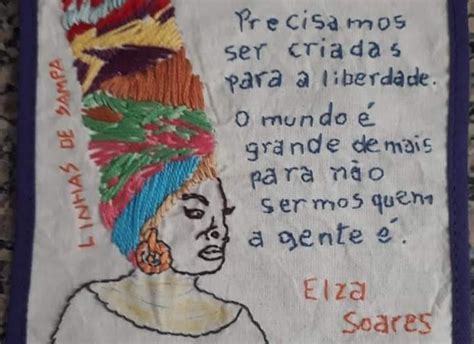 LINHAS DE SAMPA
Precisamos
ser criadas
para a liberdade.
O mundo é
grande demais
para não
sermos quem
a gente é.
Elza
Soares